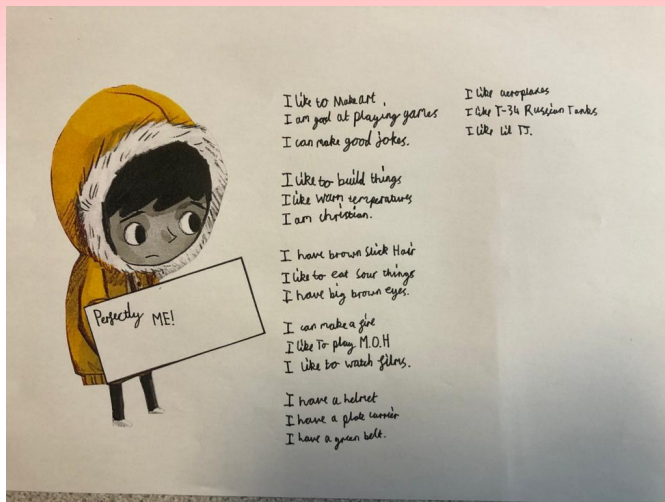 Perfectly ME!
I like to Make art,
I am good at playing games
I can make good jokes.
I like to build things
I like warm temperatures
I am christian.
I have brown Slick Hair
I like to eat Sour things
I have big brown eyes.
I can make a fire
I like To play M.O.H
I like to watch films.
I have a helmet
I have a plate carrier
I have a green belt.
I like aeroplanes
I like T-34 Russian Tanks
I like Lil TJ.